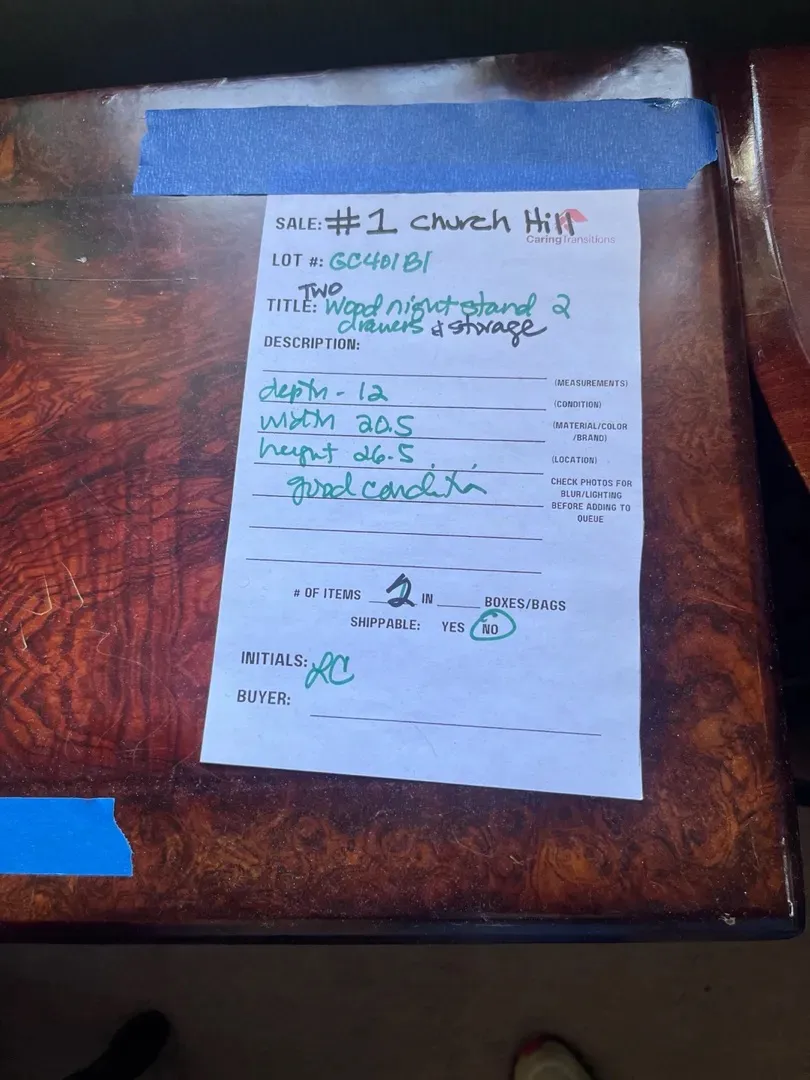 SALE: #1 Church Hill
CaringTransitions
LOT #: GC401B1
TWO
TITLE: Wood nightstand 2
drawers & storage
DESCRIPTION:
(MEASUREMENTS)
depth - 12
(CONDITION)
width 20.5
(MATERIAL/COLOR
/BRAND)
height 26.5
(LOCATION)
good condition
CHECK PHOTOS FOR
BLUR/LIGHTING
BEFORE ADDING TO
QUEUE
# OF ITEMS 2 IN ____ BOXES/BAGS
SHIPPABLE: YES NO
INITIALS: RC
BUYER: